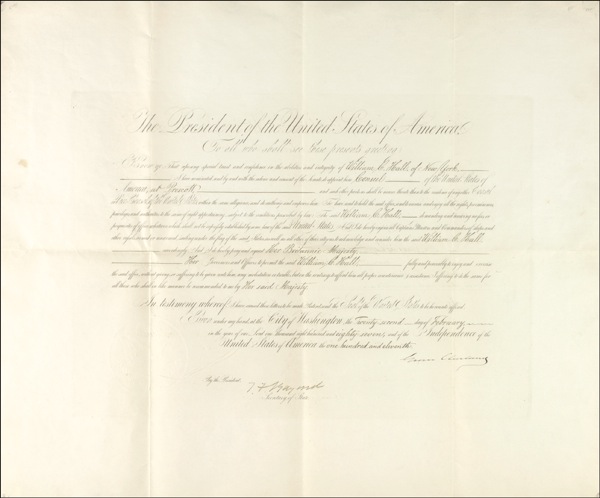 The President of the United States of America,
To all who shall see these presents greeting:
Know ye, That reposing special trust and confidence in the abilities and integrity of William C. Hall, of New York
I have nominated and by and with the advice and consent of the Senate do appoint him Consul of the United States of
America, at
and do authorize and empower him To have and to hold the said office and to exercise and enjoy all the rights, preeminences,
privileges and authorities to the same of right appertaining, subject to the conditions prescribed by law. The said William C. Hall demanding and receiving no fees or
perquisites of office whatever which shall not be expressly established by some law of the United States. And I do hereby enjoin all Captains, Masters and Commanders of Ships and
other vessels armed or unarmed sailing under the flag of the said States as well as all other of their citizens to acknowledge and consider him the said William C. Hall
accordingly. And I do hereby pray and request Her Britannic Majesty
Her Governors and Officers to permit the said William C. Hall fully and peaceably to enjoy and exercise
the said office without giving or suffering to be given unto him any molestation or trouble, but on the contrary to afford him all proper countenance and assistance. I offering to do the same for
all those who shall in like manner be recommended to me by Her said Majesty
In testimony whereof I have caused these letters to be made Patent and the Seal of the United States to be hereunto affixed
Given under my hand at the City of Washington the Twenty second day of February
in the year of our Lord one thousand eight hundred and eighty seven, and of the Independence of the
United States of America, the one hundred and eleventh.
Grover Cleveland
By the President:
T. F. Bayard
Secretary of State